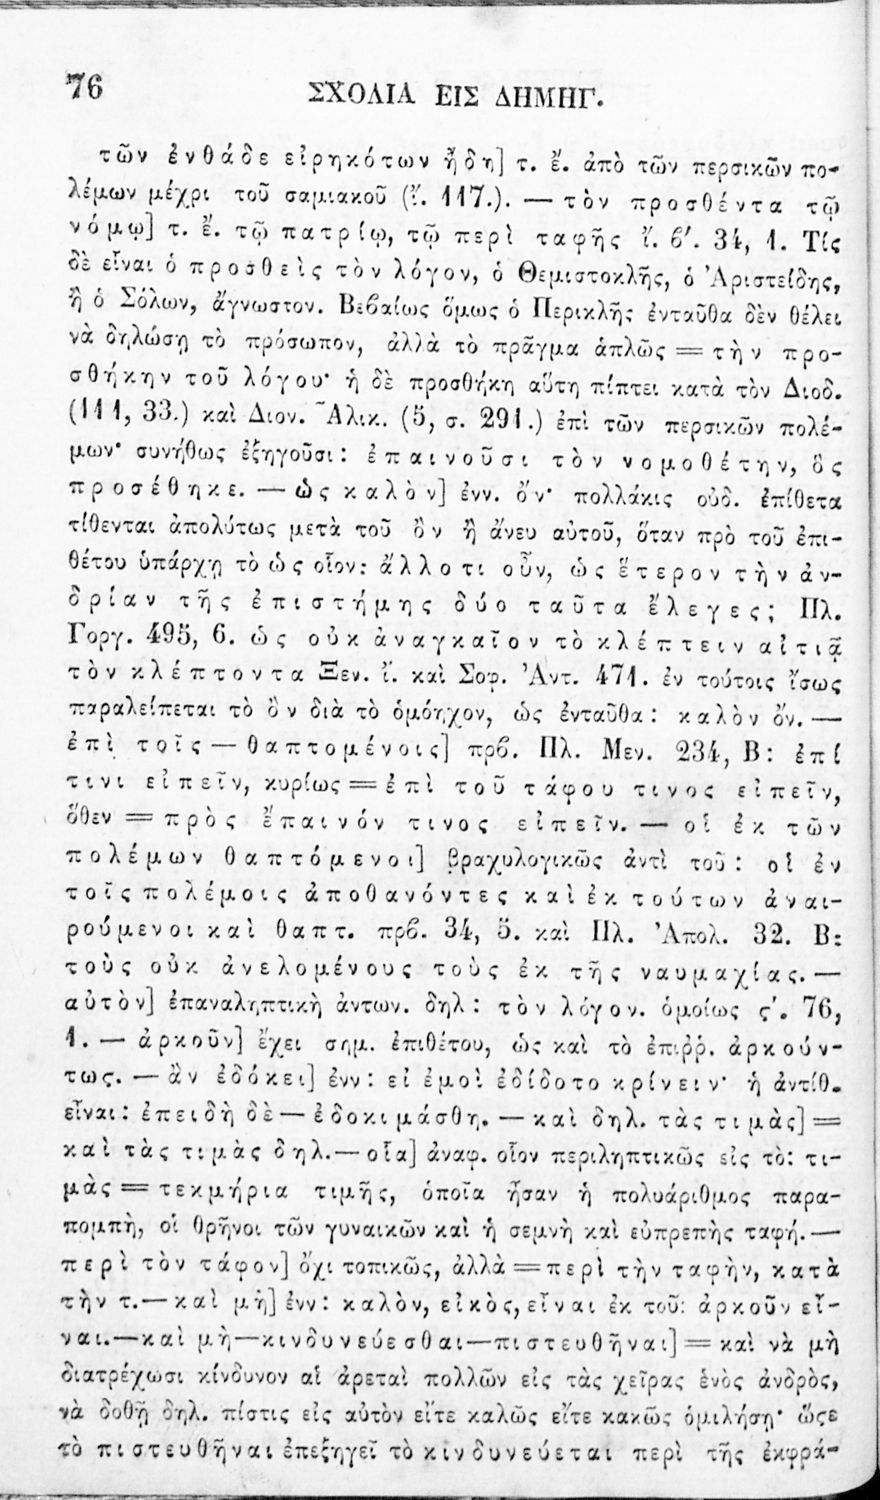 76
ΣΧΟΛΙΑ ΕΙΣ ΔΗΜΗΓ.
τῶν ἐνθάδε εἰρηκότων ἤδη] τ. ἔ. ἀπὸ τῶν περσικῶν πο-
λέμων μέχρι τοῦ σαμιακοῦ (ἴ. 117.). — τὸν προσθέντα τῷ
νόμῳ] τ. ἔ. τῷ πατρίῳ, τῷ περὶ ταφῆς ἴ. β'. 34, 1. Τίς
δὲ εἶναι ὁ προσθεὶς τὸν λόγον, ὁ Θεμιστοκλῆς, ὁ Ἀριστείδης,
ἢ ὁ Σόλων, ἄγνωστον. Βεβαίως ὅμως ὁ Περικλῆς ἐνταῦθα δὲν θέλει
νὰ δηλώσῃ τὸ πρόσωπον, ἀλλὰ τὸ πρᾶγμα ἁπλῶς = τὴν προ-
σθήκην τοῦ λόγου· ἡ δὲ προσθήκη αὕτη πίπτει κατὰ τὸν Διοδ.
(111, 33.) καὶ Διον. Ἁλικ. (5, σ. 291.) ἐπὶ τῶν περσικῶν πολέ-
μων· συνήθως ἐξηγοῦσι: ἐπαινοῦσι τὸν νομοθέτην, ὃς
προσέθηκε. — ὡς καλὸν] ἐνν. ὄν· πολλάκις οὐδ. ἐπίθετα
τίθενται ἀπολύτως μετὰ τοῦ ὂν ἢ ἄνευ αὐτοῦ, ὅταν πρὸ τοῦ ἐπι-
θέτου ὑπάρχῃ τὸ ὡς οἷον: ἄλλοτι οὖν, ὡς ἕτερον τὴν ἀν-
δρίαν τῆς ἐπιστήμης δύο ταῦτα ἔλεγες; Πλ.
Γοργ. 495, 6. ὡς οὐκ ἀναγκαῖον τὸ κλέπτειν αἰτιᾷ
τὸν κλέπτοντα Ξεν. ἴ. καὶ Σοφ. Ἀντ. 471. ἐν τούτοις ἴσως
παραλείπεται τὸ ὂν διὰ τὸ ὁμόηχον, ὡς ἐνταῦθα: καλὸν ὄν. —
ἐπὶ τοῖς — θαπτομένοις] πρβ. Πλ. Μεν. 234, Β: ἐπί
τινι εἰπεῖν, κυρίως = ἐπὶ τοῦ τάφου τινος εἰπεῖν,
ὅθεν = πρὸς ἔπαινόν τινος εἰπεῖν. — οἱ ἐκ τῶν
πολέμων θαπτόμενοι] βραχυλογικῶς ἀντὶ τοῦ: οἱ ἐν
τοῖς πολέμοις ἀποθανόντες καὶ ἐκ τούτων ἀναι-
ρούμενοι καὶ θαπτ. πρβ. 34, 5. καὶ Πλ. Ἀπολ. 32. Β:
τοὺς οὐκ ἀνελομένους τοὺς ἐκ τῆς ναυμαχίας. —
αὐτὸν] ἐπαναληπτικὴ ἀντων. δηλ: τὸν λόγον. ὁμοίως ς'. 76,
1. — ἀρκοῦν] ἔχει σημ. ἐπιθέτου, ὡς καὶ τὸ ἐπιῤῥ. ἀρκούν-
τως. — ἂν ἐδόκει] ἐνν: εἰ ἐμοὶ ἐδίδοτο κρίνειν· ἡ ἀντίθ.
εἶναι: ἐπειδὴ δὲ — ἐδοκιμάσθη. — καὶ δηλ. τὰς τιμὰς] =
καὶ τὰς τιμὰς δηλ. — οἷα] ἀναφ. οἷον περιληπτικῶς εἰς τὸ: τι-
μὰς = τεκμήρια τιμῆς, ὁποῖα ἦσαν ἡ πολυάριθμος παρα-
πομπὴ, οἱ θρῆνοι τῶν γυναικῶν καὶ ἡ σεμνὴ καὶ εὐπρεπὴς ταφή. —
περὶ τὸν τάφον] ὄχι τοπικῶς, ἀλλὰ = περὶ τὴν ταφὴν, κατὰ
τὴν τ. — καὶ μὴ] ἐνν: καλὸν, εἰκὸς, εἶναι ἐκ τοῦ: ἀρκοῦν εἶ-
ναι. — καὶ μὴ — κινδυνεύεσθαι — πιστευθῆναι] = καὶ νὰ μὴ
διατρέχωσι κίνδυνον αἱ ἀρεταὶ πολλῶν εἰς τὰς χεῖρας ἑνὸς ἀνδρὸς,
νὰ δοθῇ δηλ. πίστις εἰς αὐτὸν εἴτε καλῶς εἴτε κακῶς ὁμιλήσῃ· ὥςε
τὸ πιστευθῆναι ἐπεξηγεῖ τὸ κινδυνεύεται περὶ τῆς ἐκφρά-